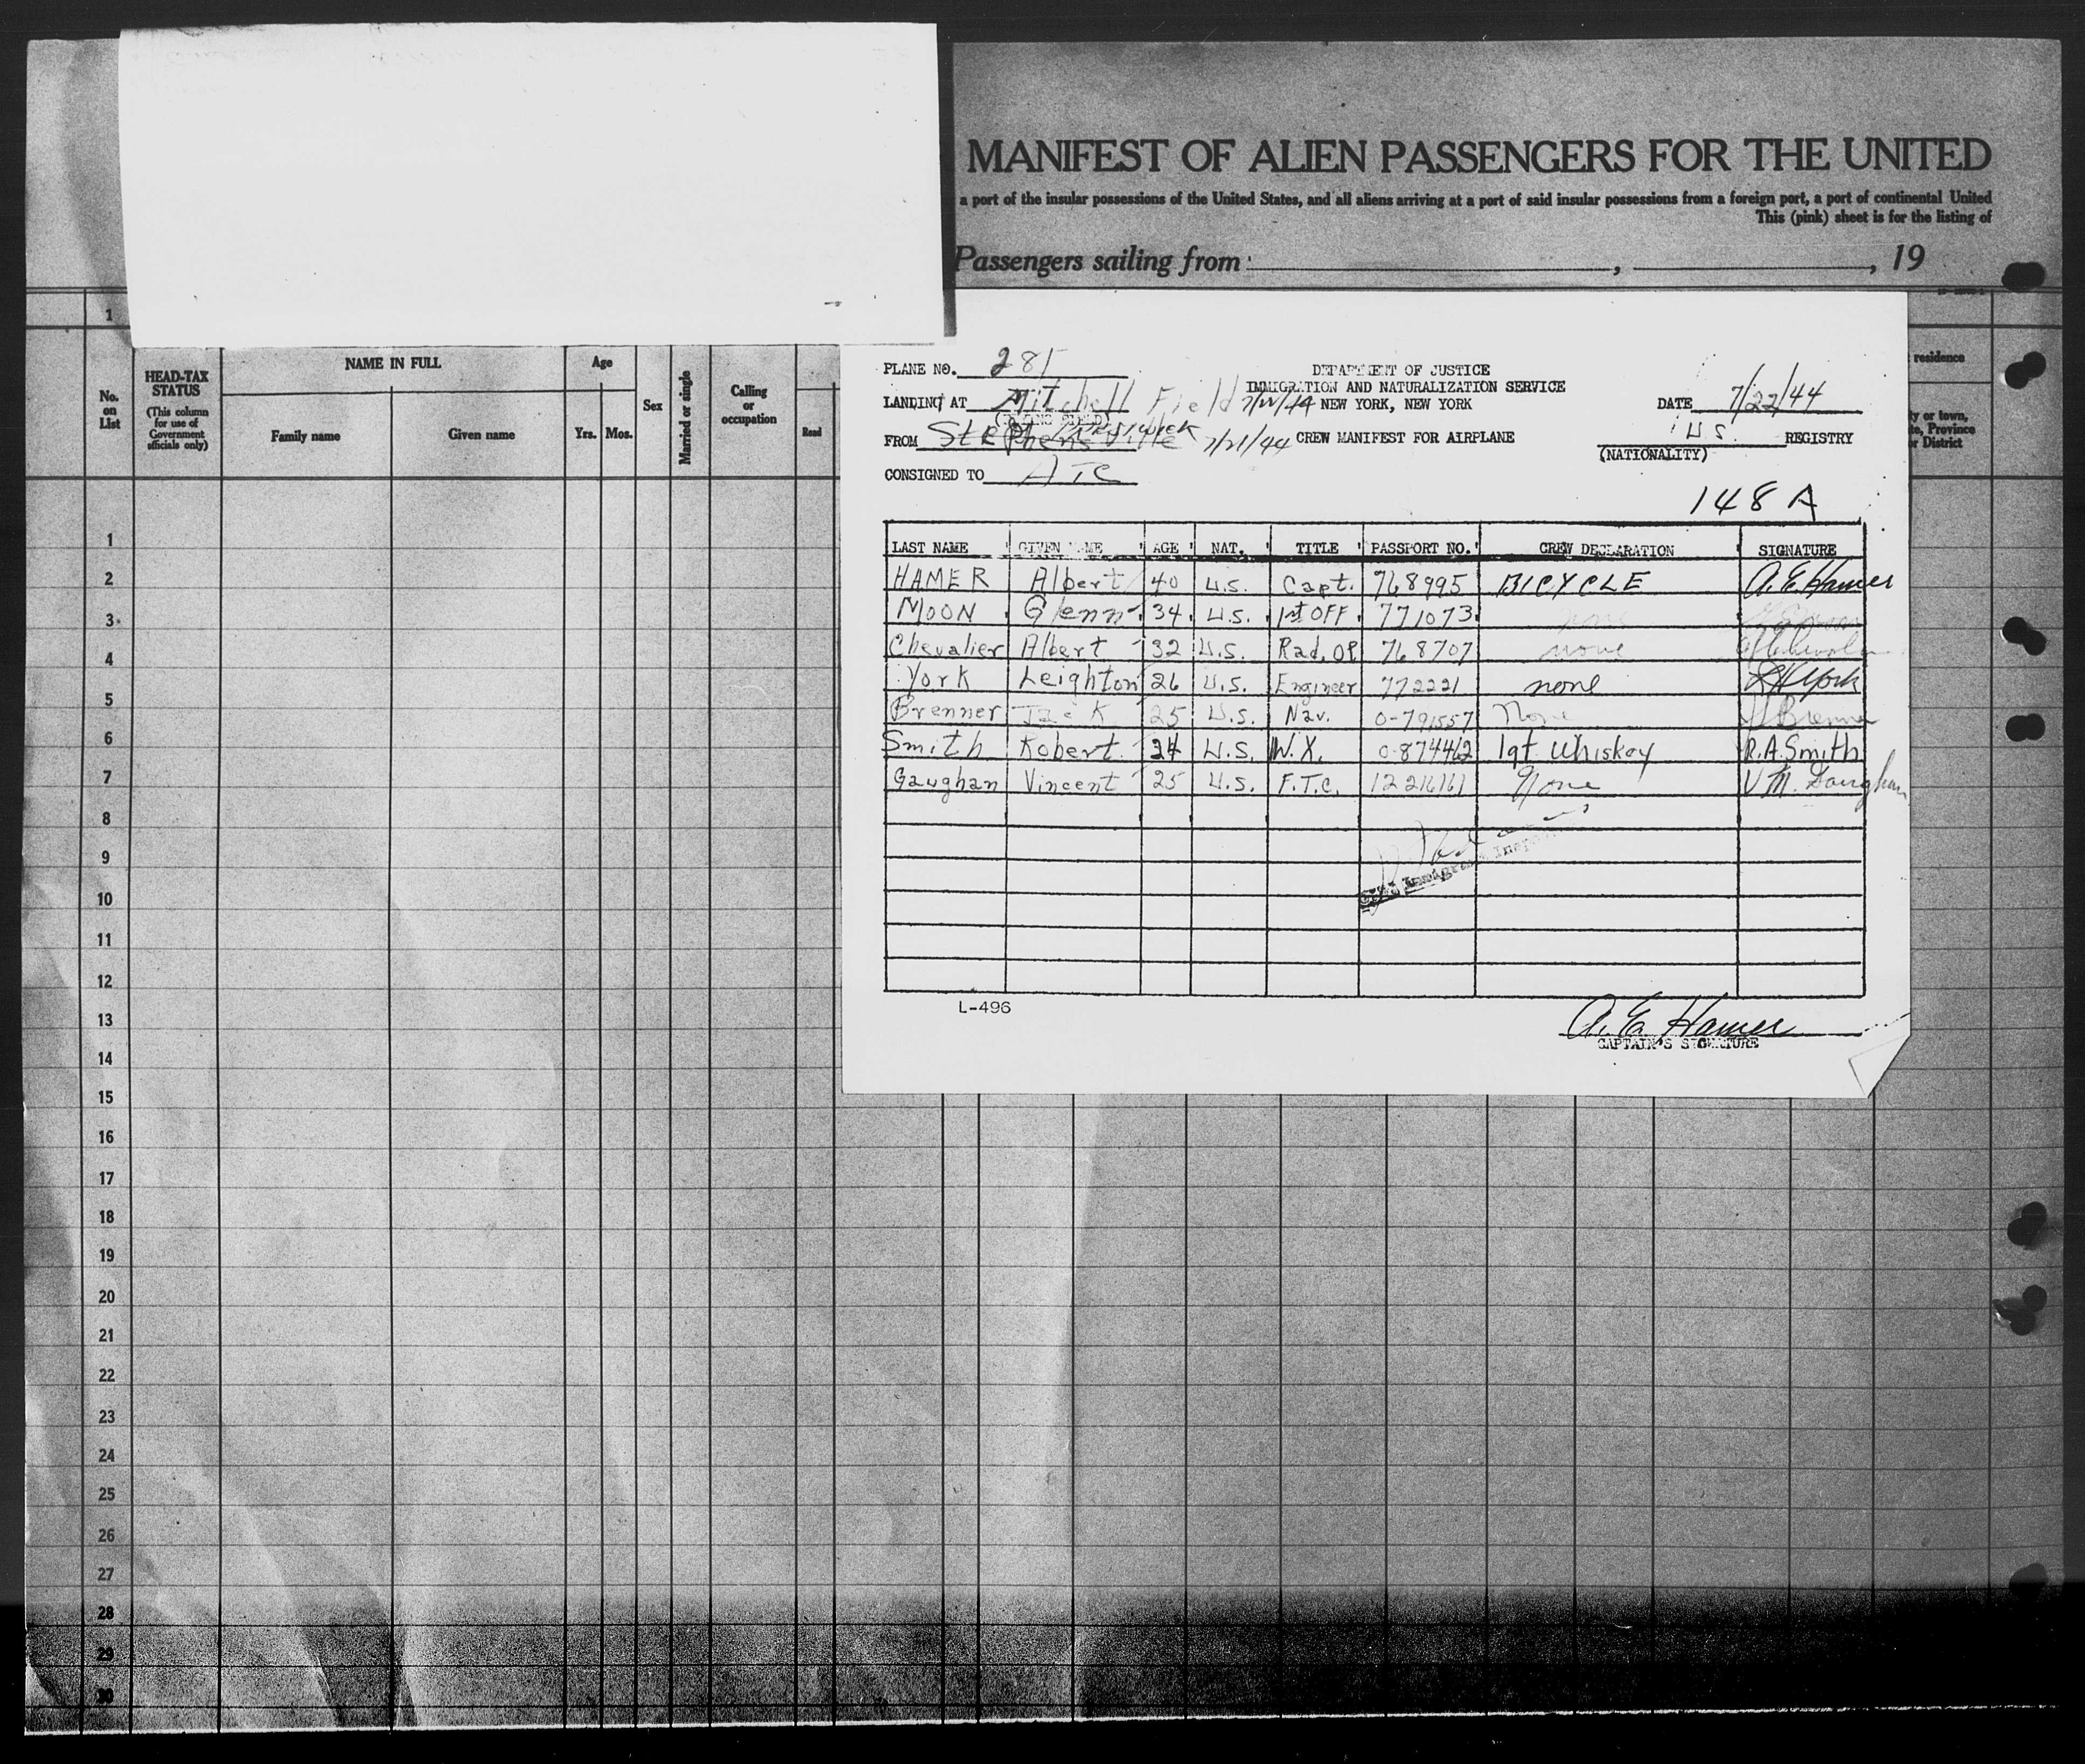 MANIFEST OF ALIEN PASSENGERS FOR THE UNITED
a port of the insular possessions of the United States, and all aliens arriving at a port of said insular possessions from a foreign port, a port of continental United
This (pink) sheet is for the listing of
Passengers sailing from , , 19
1
No. on List
HEAD-TAX STATUS
(This column for use of Government officials only)
NAME IN FULL
Family name
Given name
Age
Yrs. Mos.
Sex
Married or single
Calling or occupation
Read
residence
or town,
Province
or District
PLANE NO. 281
DEPARTMENT OF JUSTICE
IMMIGRATION AND NATURALIZATION SERVICE
LANDING AT Mitchell Field 7/22/44 NEW YORK, NEW YORK
DATE 7/22/44
FROM Stephenville 7/21/44 CREW MANIFEST FOR AIRPLANE
U.S. REGISTRY
(NATIONALITY)
CONSIGNED TO ATC
148 A
LAST NAME GIVEN NAME AGE NAT. TITLE PASSPORT NO. CREW DECLARATION SIGNATURE
HAMER Albert 40 U.S. Capt. 768995 BICYCLE A.E. Hamer
MOON Glenn 34 U.S. 1st OFF. 771073 none
Chevalier Albert 32 U.S. Rad. OP 768707 none
York Leighton 26 U.S. Engineer 772221 none L H York
Brenner Jack 25 U.S. Nav. O-791557 None J Brenner
Smith Robert 24 U.S. W.X. O-874462 1qt Whiskey R.A. Smith
Gaughan Vincent 25 U.S. F.T.C. 12216161 None V M. Gaughan
Immigrant Inspector
L-496
A. E. Hamer
CAPTAIN'S SIGNATURE
1
2
3
4
5
6
7
8
9
10
11
12
13
14
15
16
17
18
19
20
21
22
23
24
25
26
27
28
29
30